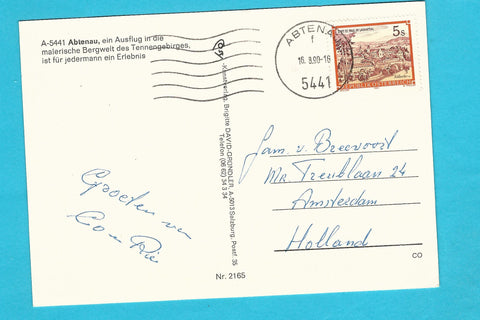 A-5441 Abtenau, ein Ausflug in die
malerische Bergwelt des Tennengebirges,
ist für jedermann ein Erlebnis
ABTENAU
f
16. 8.90-16
5441
5s
REPUBLIK ÖSTERREICH
Kunstverlag Brigitte DAVID-GRÜNDLER, A-5013 Salzburg, Postf. 35
Telefon (06 62) 34 3 34
Groeten van
Co en Rie
Fam. v. Breevoort
Mr. Treublaan 24
Amsterdam
Holland
CO
Nr. 2165